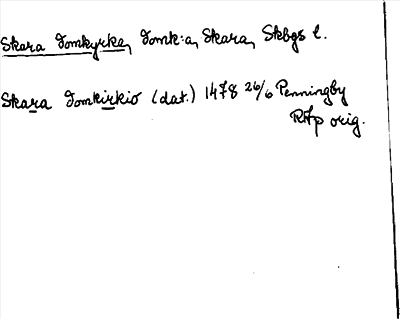 Skara Domkyrka, Domk:a, Skara, Skbgs l.
Skara Domkirkio (dat.) 1478 26/6 Penningby
RAp orig.